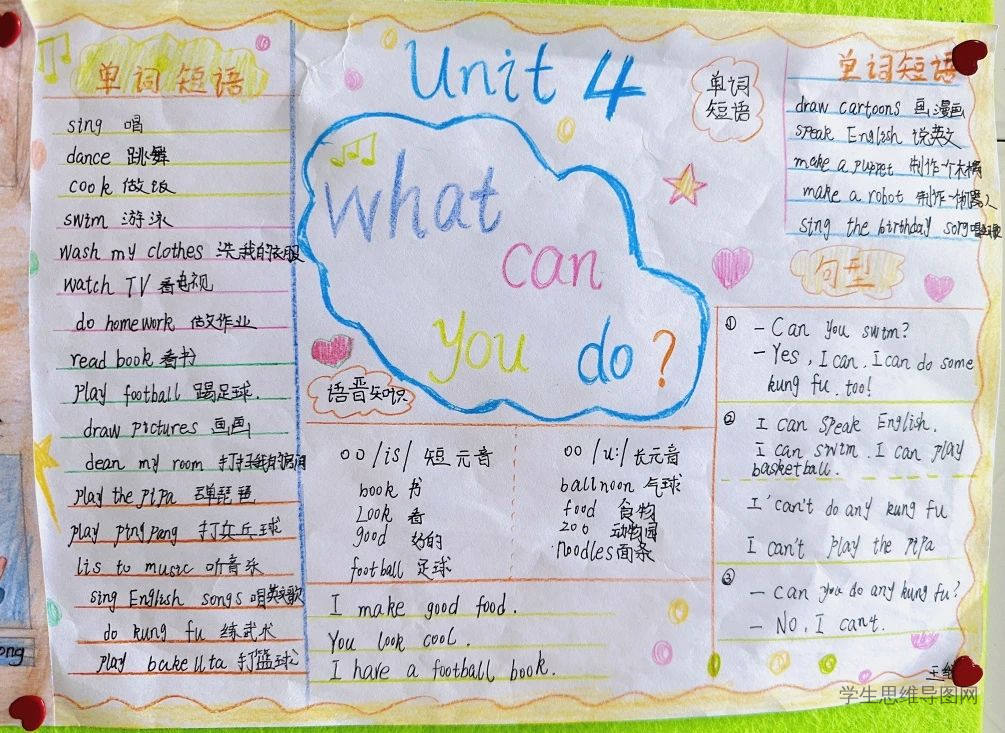 单词短语
sing 唱
dance 跳舞
cook 做饭
swim 游泳
wash my clothes 洗我的衣服
watch TV 看电视
do homework 做作业
read book 看书
play football 踢足球.
draw pictures 画画
dean my room 打扫我的房间
play the pipa 弹琵琶
play ping pong 打乒乓球
lis to music 听音乐
sing English songs 唱英文歌
do kung fu 练武术
play 打篮球
Unit 4
what
can
you do?
语音知识
oo /is/ 短元音
book 书
Look 看
good 好的
football 足球
oo /u:/ 长元音
ballnoon 气球
food 食物
zoo 动物园
noodles 面条
I make good food.
You look cool.
I have a football book.
单词
短语
单词短语
draw cartoons 画漫画
speak English 说英文
make a puppet 制作一个木偶
make a robot 制作一个机器人
sing the birthday song
句型
① - Can you swim?
- Yes, I can. I can do some
kung fu. too!
② I can speak English.
I can swim. I can play
basketball.
I can't do any kung fu
I can't play the pipa
③ - can you do any kung fu?
- No, I can't.
学生思维导图网
ong